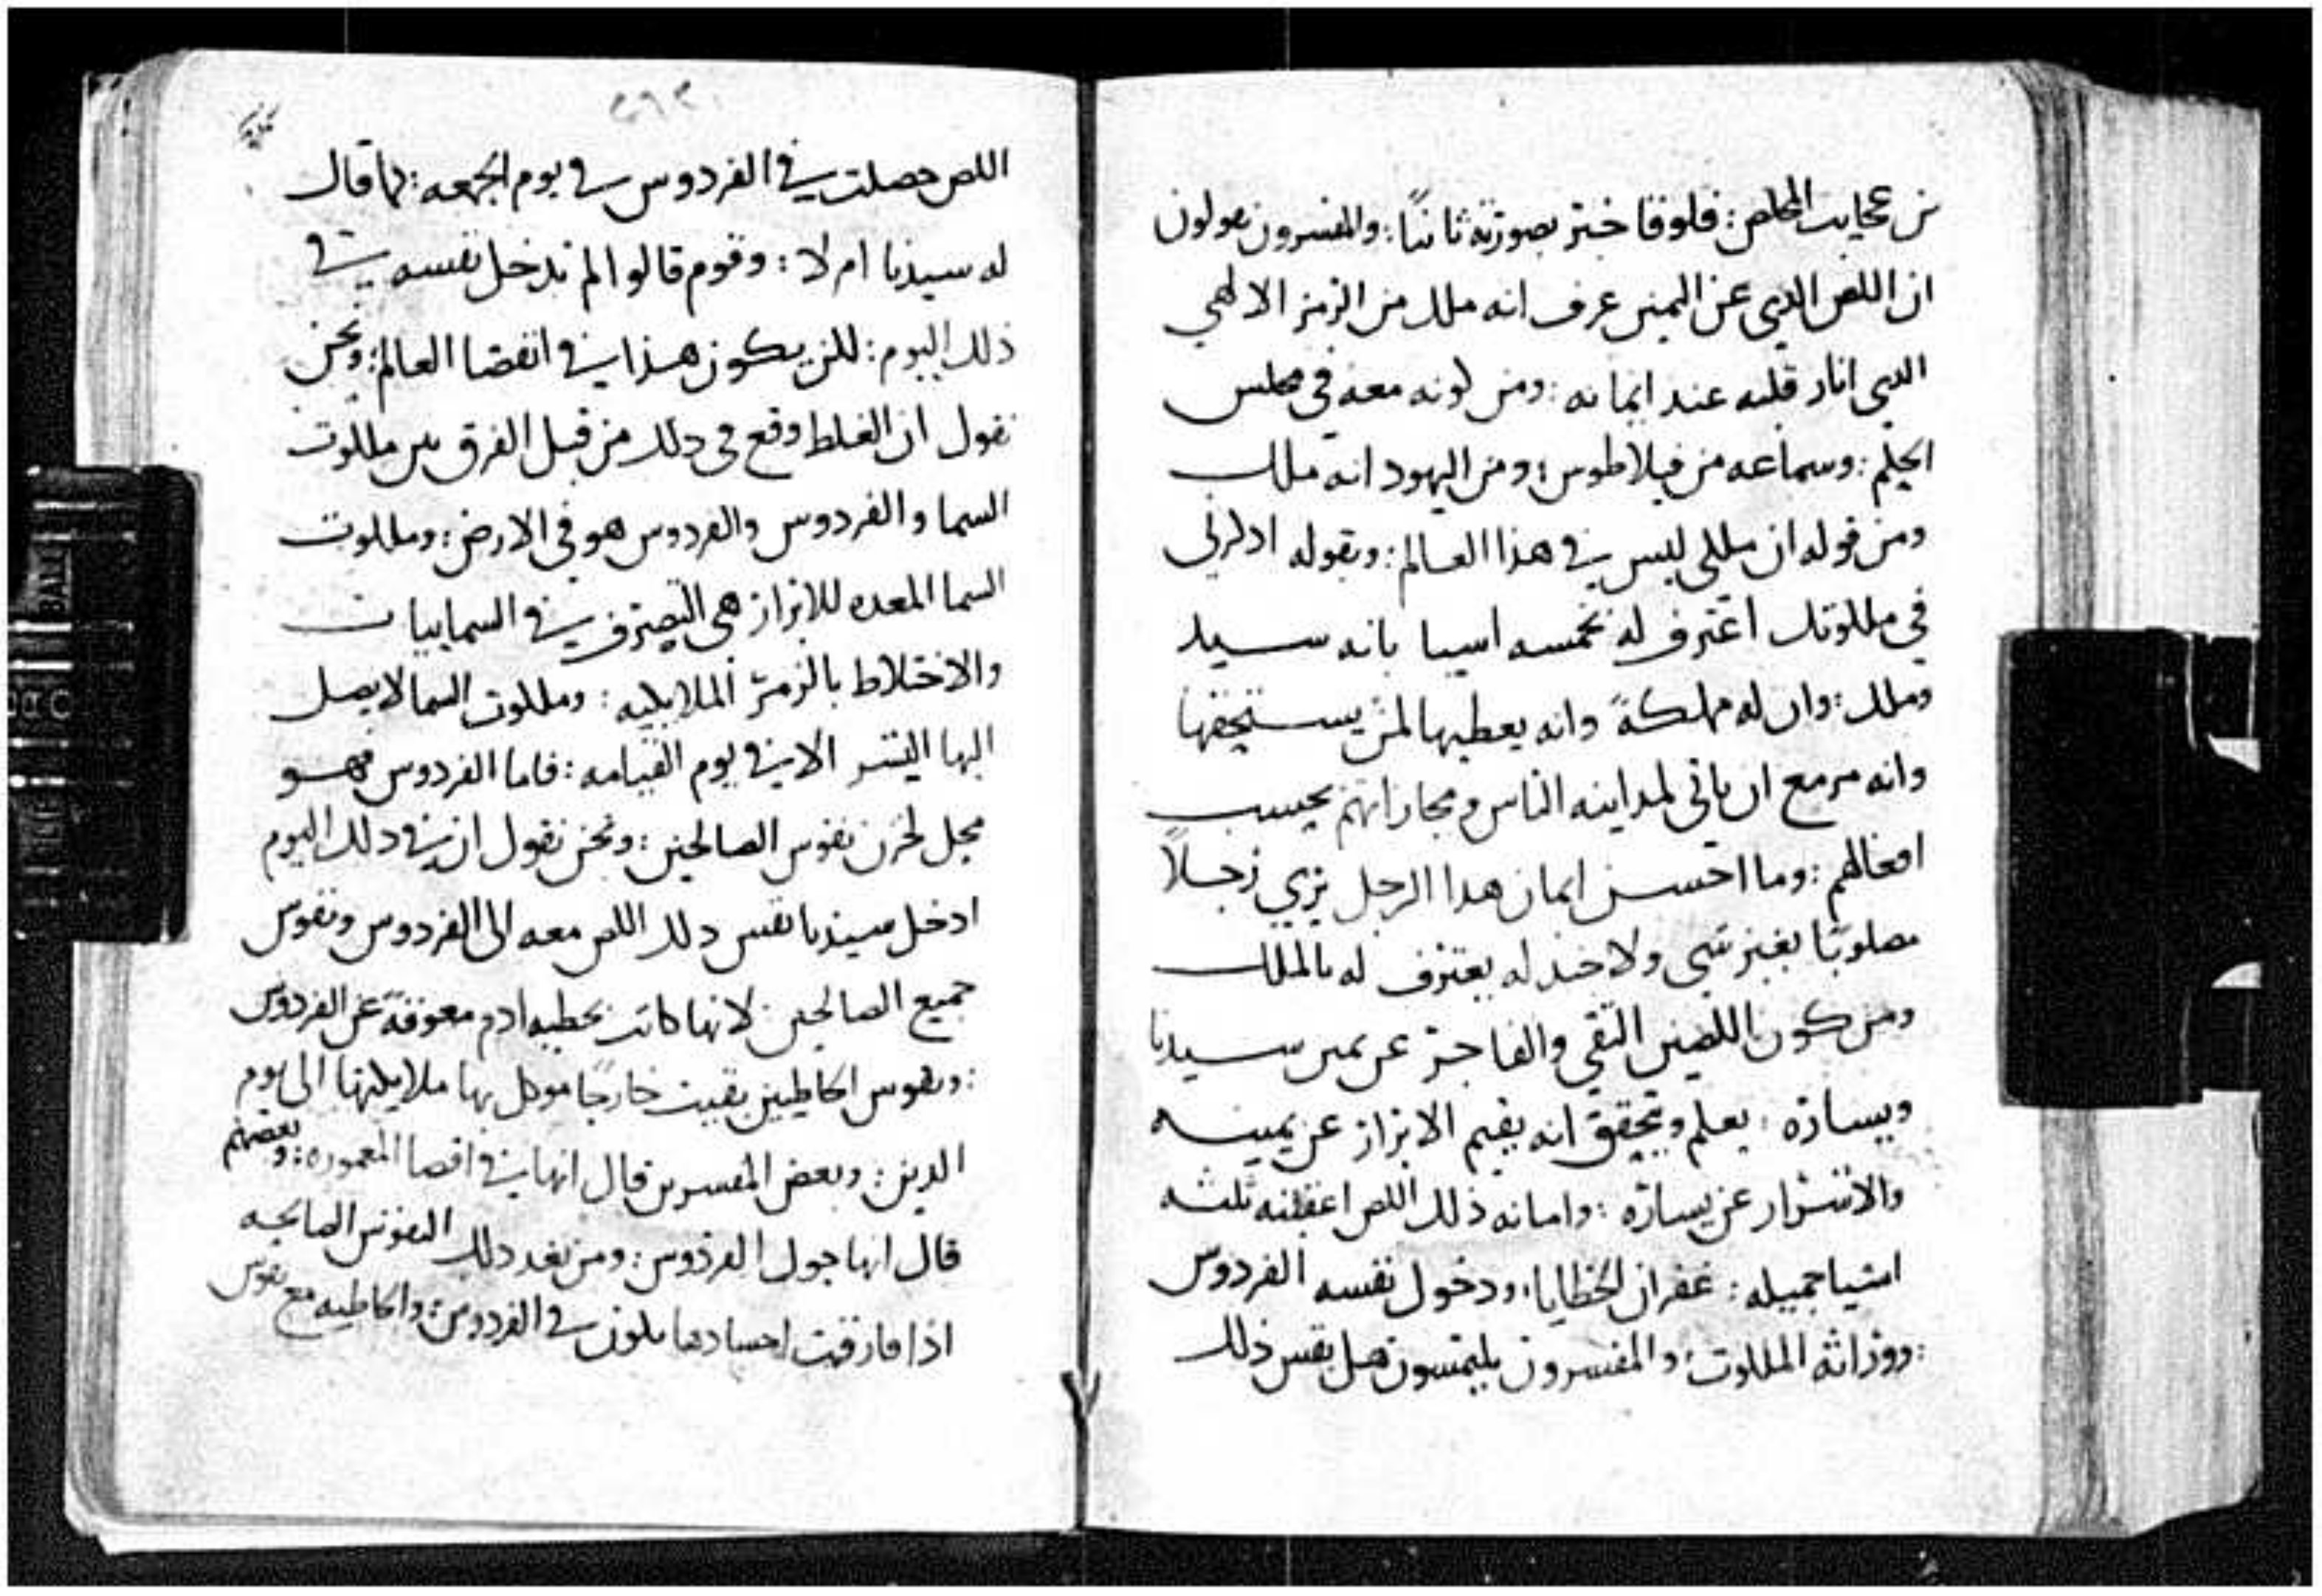 من عجايب المخلص: فلوقا خبر بصورته ثانيًا: والمفسرون يقولون
ان اللص الدي عن اليمين عرف انه ملك من الرمز الالهي
الدي انار قلبه عند ايمانه: ومن كونه معه في مجلس
الحكم: وسماعه من فيلاطوس: ومن اليهود انه ملك
ومن قوله ان ملكي ليس في هذا العالم: وبقوله ادكرني
في ملكوتك اعترف له بخمسه اسيا بانه سيد
وملك: وان له مملكةً وانه يعطيها لمن يستحقها
وانه مزمع ان ياتي لمداينه الناس ومجازاتهم بحسب
افعالهم: وما احسن ايمان هدا الرجل يري رجلاً
مصلوبًا بغير شي ولا جند له يعترف له بالملك
ومن كون اللصين التقي والفاجر عن يمين سيدنا
ويساره: يعلم ويتحقق انه يقيم الابرار عن يمينه
والاشرار عن يساره: وامانه ذلك اللص اعقبته ثلثه
اشيا جميله: غفران الخطايا: ودخول نفسه الفردوس
: ووراثه الملكوت: والمفسرون يلتمسون هل نفس ذلك
اللص حصلت في الفردوس في يوم الجمعه: كما قال
له سيدنا ام لا: وقوم قالوا لم تدخل نفسه في
ذلك اليوم: لكن يكون هذا في انقضا العالم: ونحن
نقول ان الغلط وقع في دلك من قبل الفرق بين ملكوت
السما والفردوس والفردوس هو في الارض: وملكوت
السما المعده للابرار هي التصرف في السماييات
والاختلاط بالزمر الملايكيه: وملكوت السما لا يصل
اليها البشر الا في يوم القيامه: فاما الفردوس فهو
محل لخزن نفوس الصالحين: ونحن نقول ان في دلك اليوم
ادخل سيدنا نفس دلك اللص معه الى الفردوس ونفوس
جميع الصالحين لانها كانت بخطيه ادم معوقةً عن الفردوس
: ونفوس الخاطيين بقيت خارجًا موكل بها ملايكتها الى يوم
الدين: وبعض المفسرين قال انها في اقصا المعموره: وبعضهم
قال انها حول الفردوس: ومن بعد دلك النفوس الصالحه
اذا فارقت اجسادها تكون في الفردوس: والخاطيه مع نفوس